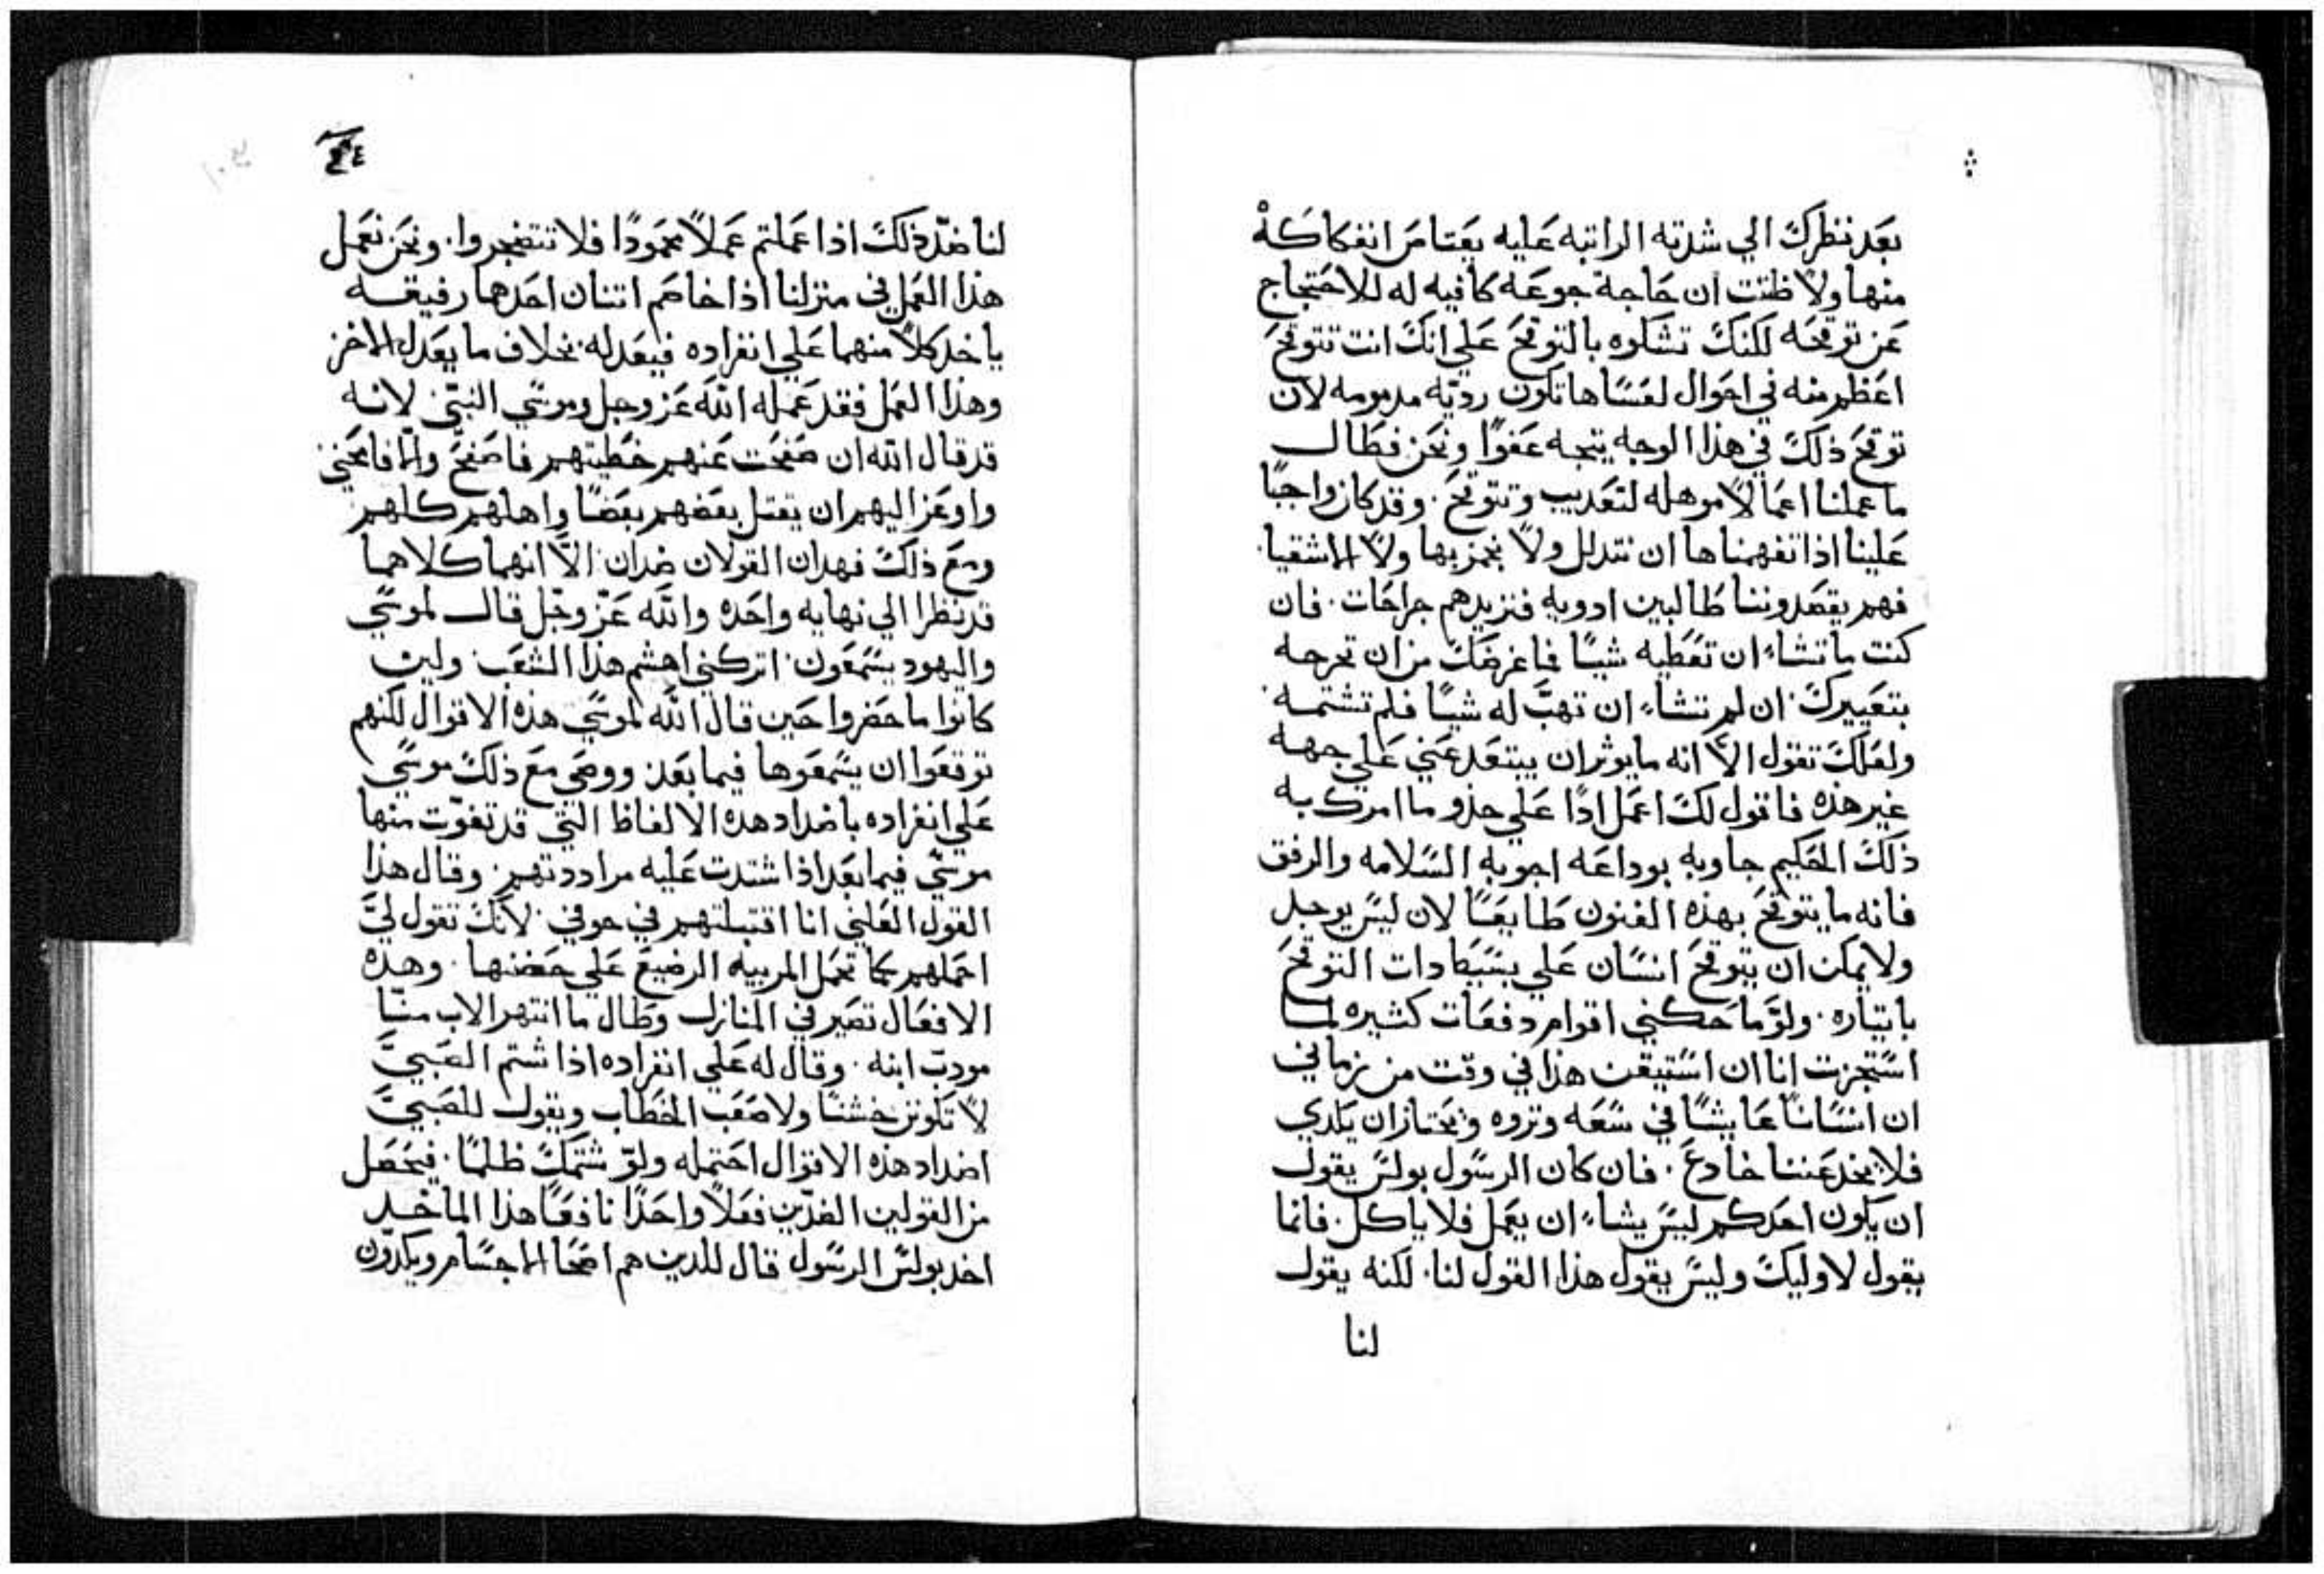 بعد نظرك الي شدته الراتبه عليه يعتاص انفكاكه
منها ولا ظننت ان حاجة جوعه كافيه له للاحتجاج
عن توقحه لكنك تشكوه بالتوقح علي انك انت تتوقح
اعظم منه في احوال لعساها تكون رديّه مدمومه لان
توقح ذلك في هذا الوجه يتجه عفوًا ونحن فطال
ما عملنا اعمالاً موهله لتعديب وتتوقح. وقد كان واجبًا
علينا اذا تفهمناها ان نتدلل ولا نجمز بها ولا الاشقيا.
فهم يقصدوننا طالبين ادويه فنزيدهم جراحات. فان
كنت ما تشاء ان تعطيه شيًا فما غرضك من ان تحرجه
بتعييرك. ان لم تشاء ان تهبّ له شيًا فلم تشتمه.
ولعلك تقول الاّ انه ما يوثر ان يبتعد عني علي جهه
غير هذه فاقول لك اعمل ادًا علي حذو ما امرك به
ذلك الحكيم جاوبه بوداعه اجوبه السلامه والرفق
فانه ما يتوقح بهذه الفنون طايعًا لان ليس يوجل
ولا يمكن ان يتوقح انسان علي بسيطادات التوقح
بايتاره. ولوّ ماحكني اقوام دفعات كثيره لما
استجزت انا ان استيقن هذا في وقت من زماني
ان انسانًا عايشًا في سعه وثروه ويختار ان يكدي
فلا يخدعننا خادع. فان كان الرسول بولس يقول
ان يكون احدكم ليس يشاء ان يعمل فلا ياكل. فانما
يقول لاوليك وليس يقول هذا القول لنا. لكنه يقول
لنا
لنا ضدّ ذلك اذا عملتم عملاً محمودًا فلا تتضجروا. ونحن نعمل
هذا العمل في منزلنا اذا خاصم اتنان احدهما رفيقه
ياخد كلاً منهما علي انفراده فيعد له بخلاف ما يعد للاخر
وهذا العمل فقد عمله الله عز وجل وموسي النبيّ لانه
قد قال الله ان صفحت عنهم خطيتهم فاصفح والاّ فامحني
واوعز اليهم ان يقتل بعضهم بعضًا واهلهم كلهم
ومع ذلك فهدان القولان ضدان الاّ انهما كلاهما
قد نظرا الي نهايه واحده والله عزّ وجّل قال لموسي
واليهود يسمعون اتركني اهشم هذا الشعب ولين
كانوا ما حضروا حين قال الله لموسي هذه الاقوال لكنهم
توقعوا ان يسمعوها فيما بعد ووصي مع ذلك موسي
علي انفراده باضداد هده الالفاظ التي قد تفوّت منها
موسي فيما بعد اذا شتدت عليه مراددتهم. وقال هذا
القول العلني انا اقتبلتهم في جوفي لانك تقول ليّ
احملهم كما تحمل المربيه الرضيع علي حضنها. وهده
الافعال تصير في المنازل وطال ما انتهر الاب منّا
مودبّ ابنه. وقال له علي انفراده اذا شتم الصبيّ
لا تكونن خشنًا ولا صعب الخطاب ويقول للصبيّ
اضداد هذه الاقوال احتمله ولوّ شتمك ظلمًا. فيحصل
من القولين الضدّين فعلاً واحدًا نافعًا هذا الماخد
اخد بولس الرسول قال للدين هم اصحا الاجسام ويكدّون